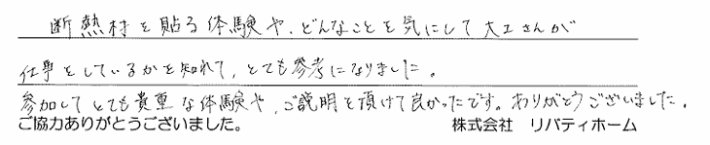 断熱材を貼る体験や、どんなことを気にして大工さんが
仕事をしているかを知れて、とても参考になりました。
参加してとても貴重な体験や、ご説明を頂けて良かったです。ありがとうございました。
ご協力ありがとうございました。 株式会社 リバティホーム